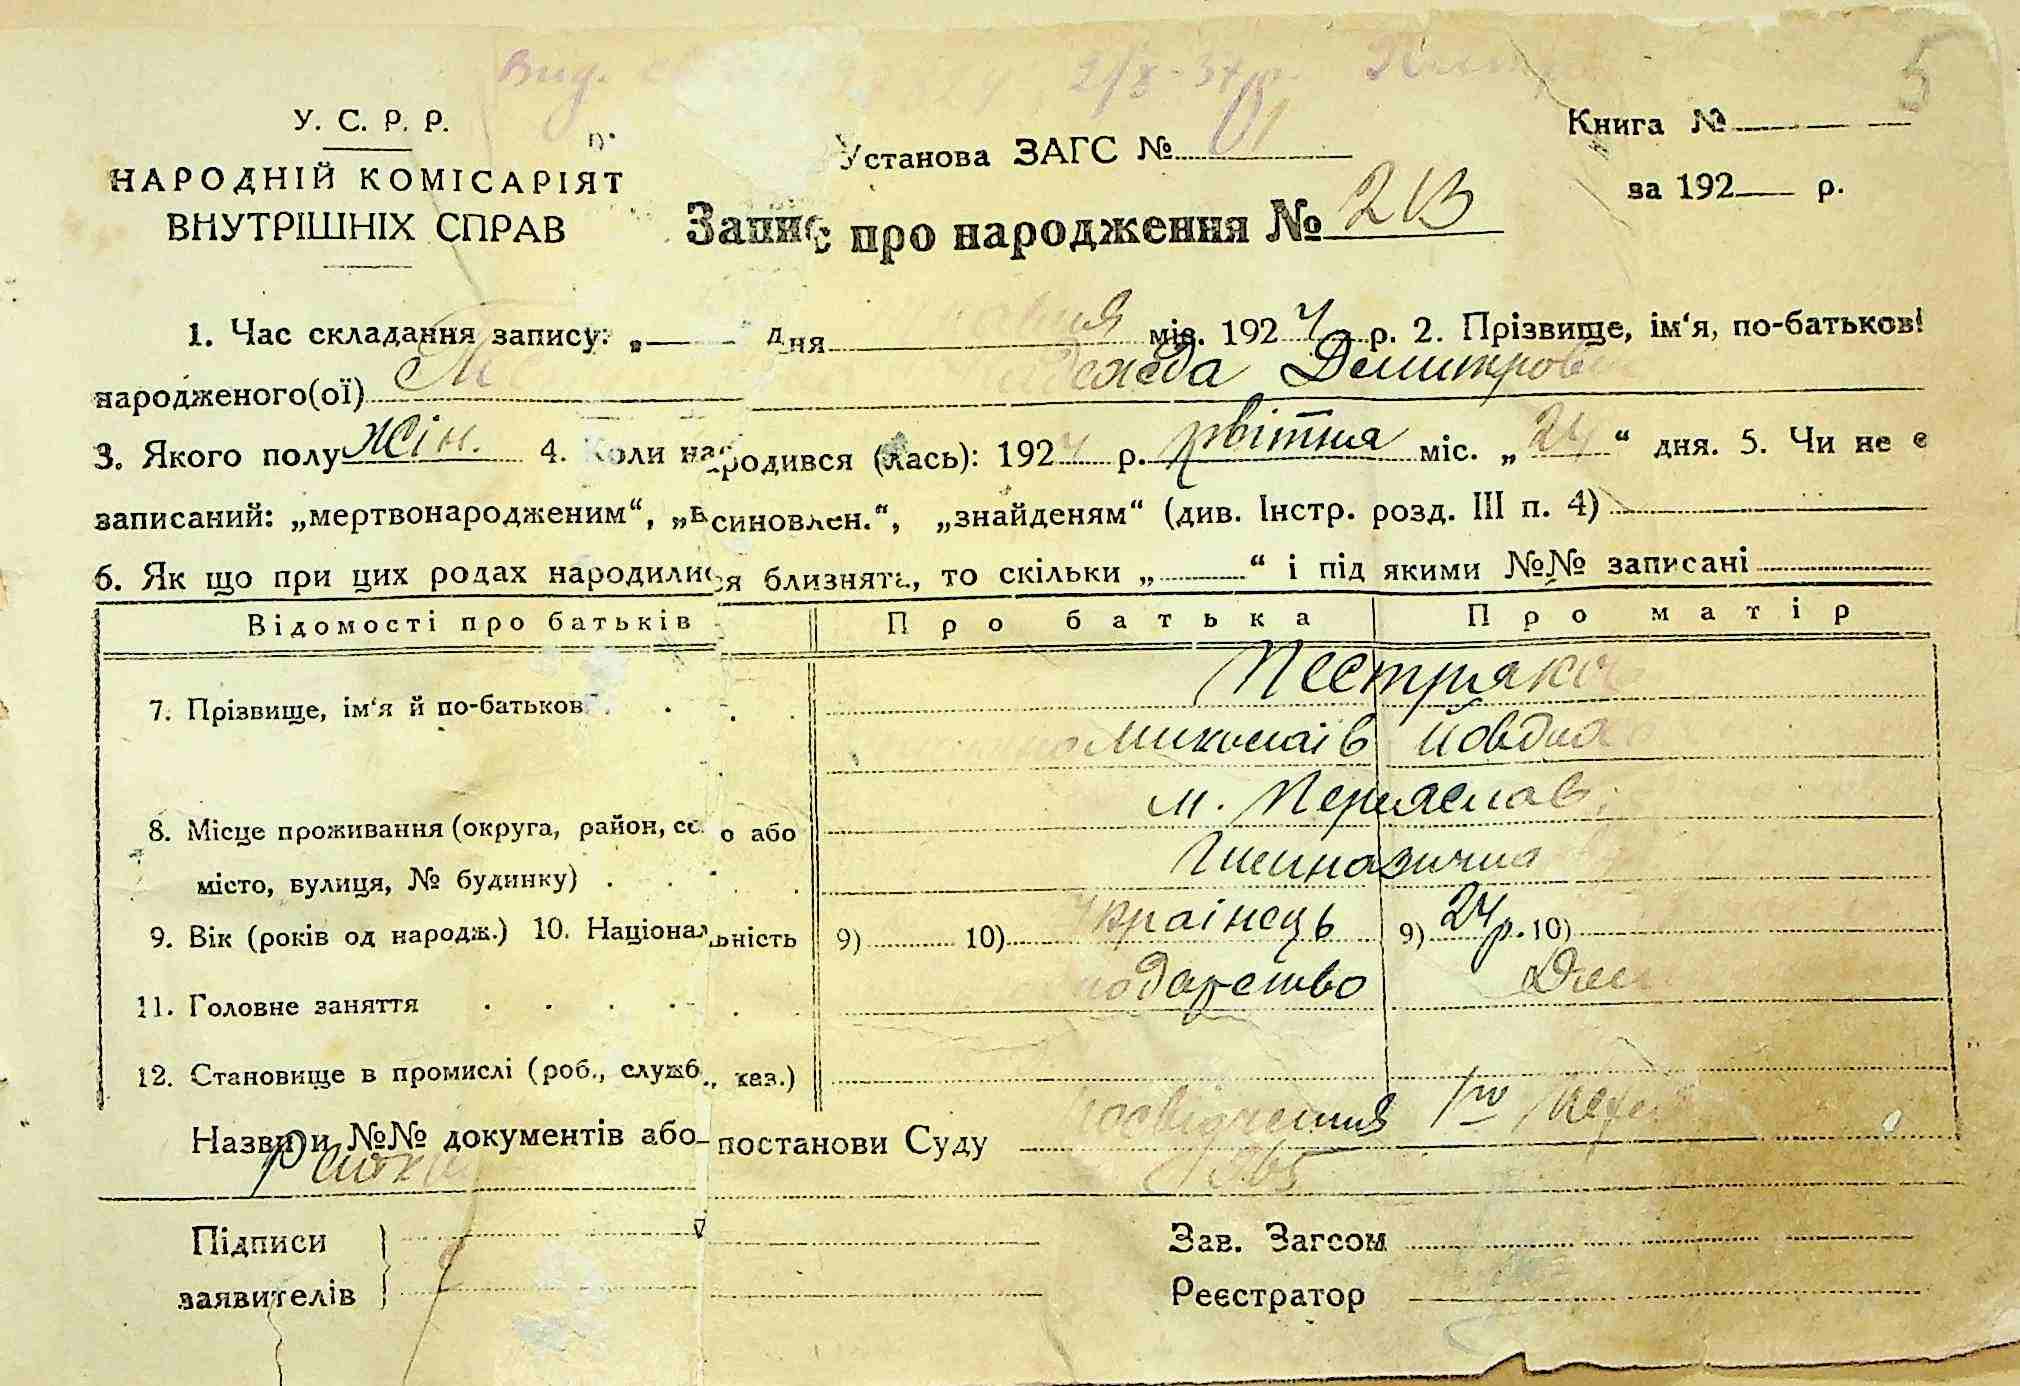 Вид. 2/X-34р.
5
У. С. Р. Р.
НАРОДНІЙ КОМІСАРІЯТ
ВНУТРІШНІХ СПРАВ
Установа ЗАГС №
Книга №
за 192 р.
Запис про народження № 213
1. Час складання запису: „ дня міс. 1924 р. 2. Прізвище, ім‘я, по-батькові
народженого(ої) Надежда Демитров
3. Якого полу жін. 4. Коли народився (лась): 1924 р. квітня міс. „24“ дня. 5. Чи не є
записаний: „мертвонародженим“, „всиновлен.“, „знайденям“ (див. Інстр. розд. III п. 4)
6. Як що при цих родах народилися близнята, то скільки „ “ і під якими №№ записані
Відомості про батьків Про батька Про матір
7. Прізвище, ім‘я й по-батькові Пестряков
Миколаїв Йовдоха
8. Місце проживання (округа, район, село або м. Переяслав,
місто, вулиця, № будинку) Гимназична
9. Вік (років од народж.) 10. Національність 9) 10) Украінець 9) 24 р. 10)
11. Головне заняття господарство Дом
12. Становище в промислі (роб., службо., хаз.)
Назви и №№ документів або постанови Суду посвідчення 1го
Підписи
заявителів
Зав. Загсом
Реєстратор